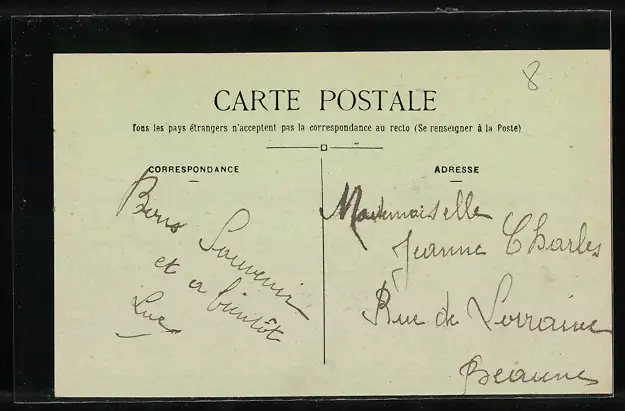 8
CARTE POSTALE
Tous les pays étrangers n'acceptent pas la correspondance au recto (Se renseigner à la Poste)
CORRESPONDANCE
Bons Souvenir
et a bientôt
Luc
ADRESSE
Mademoiselle
Jeanne Charles
Rue de Lorraine
Beaune